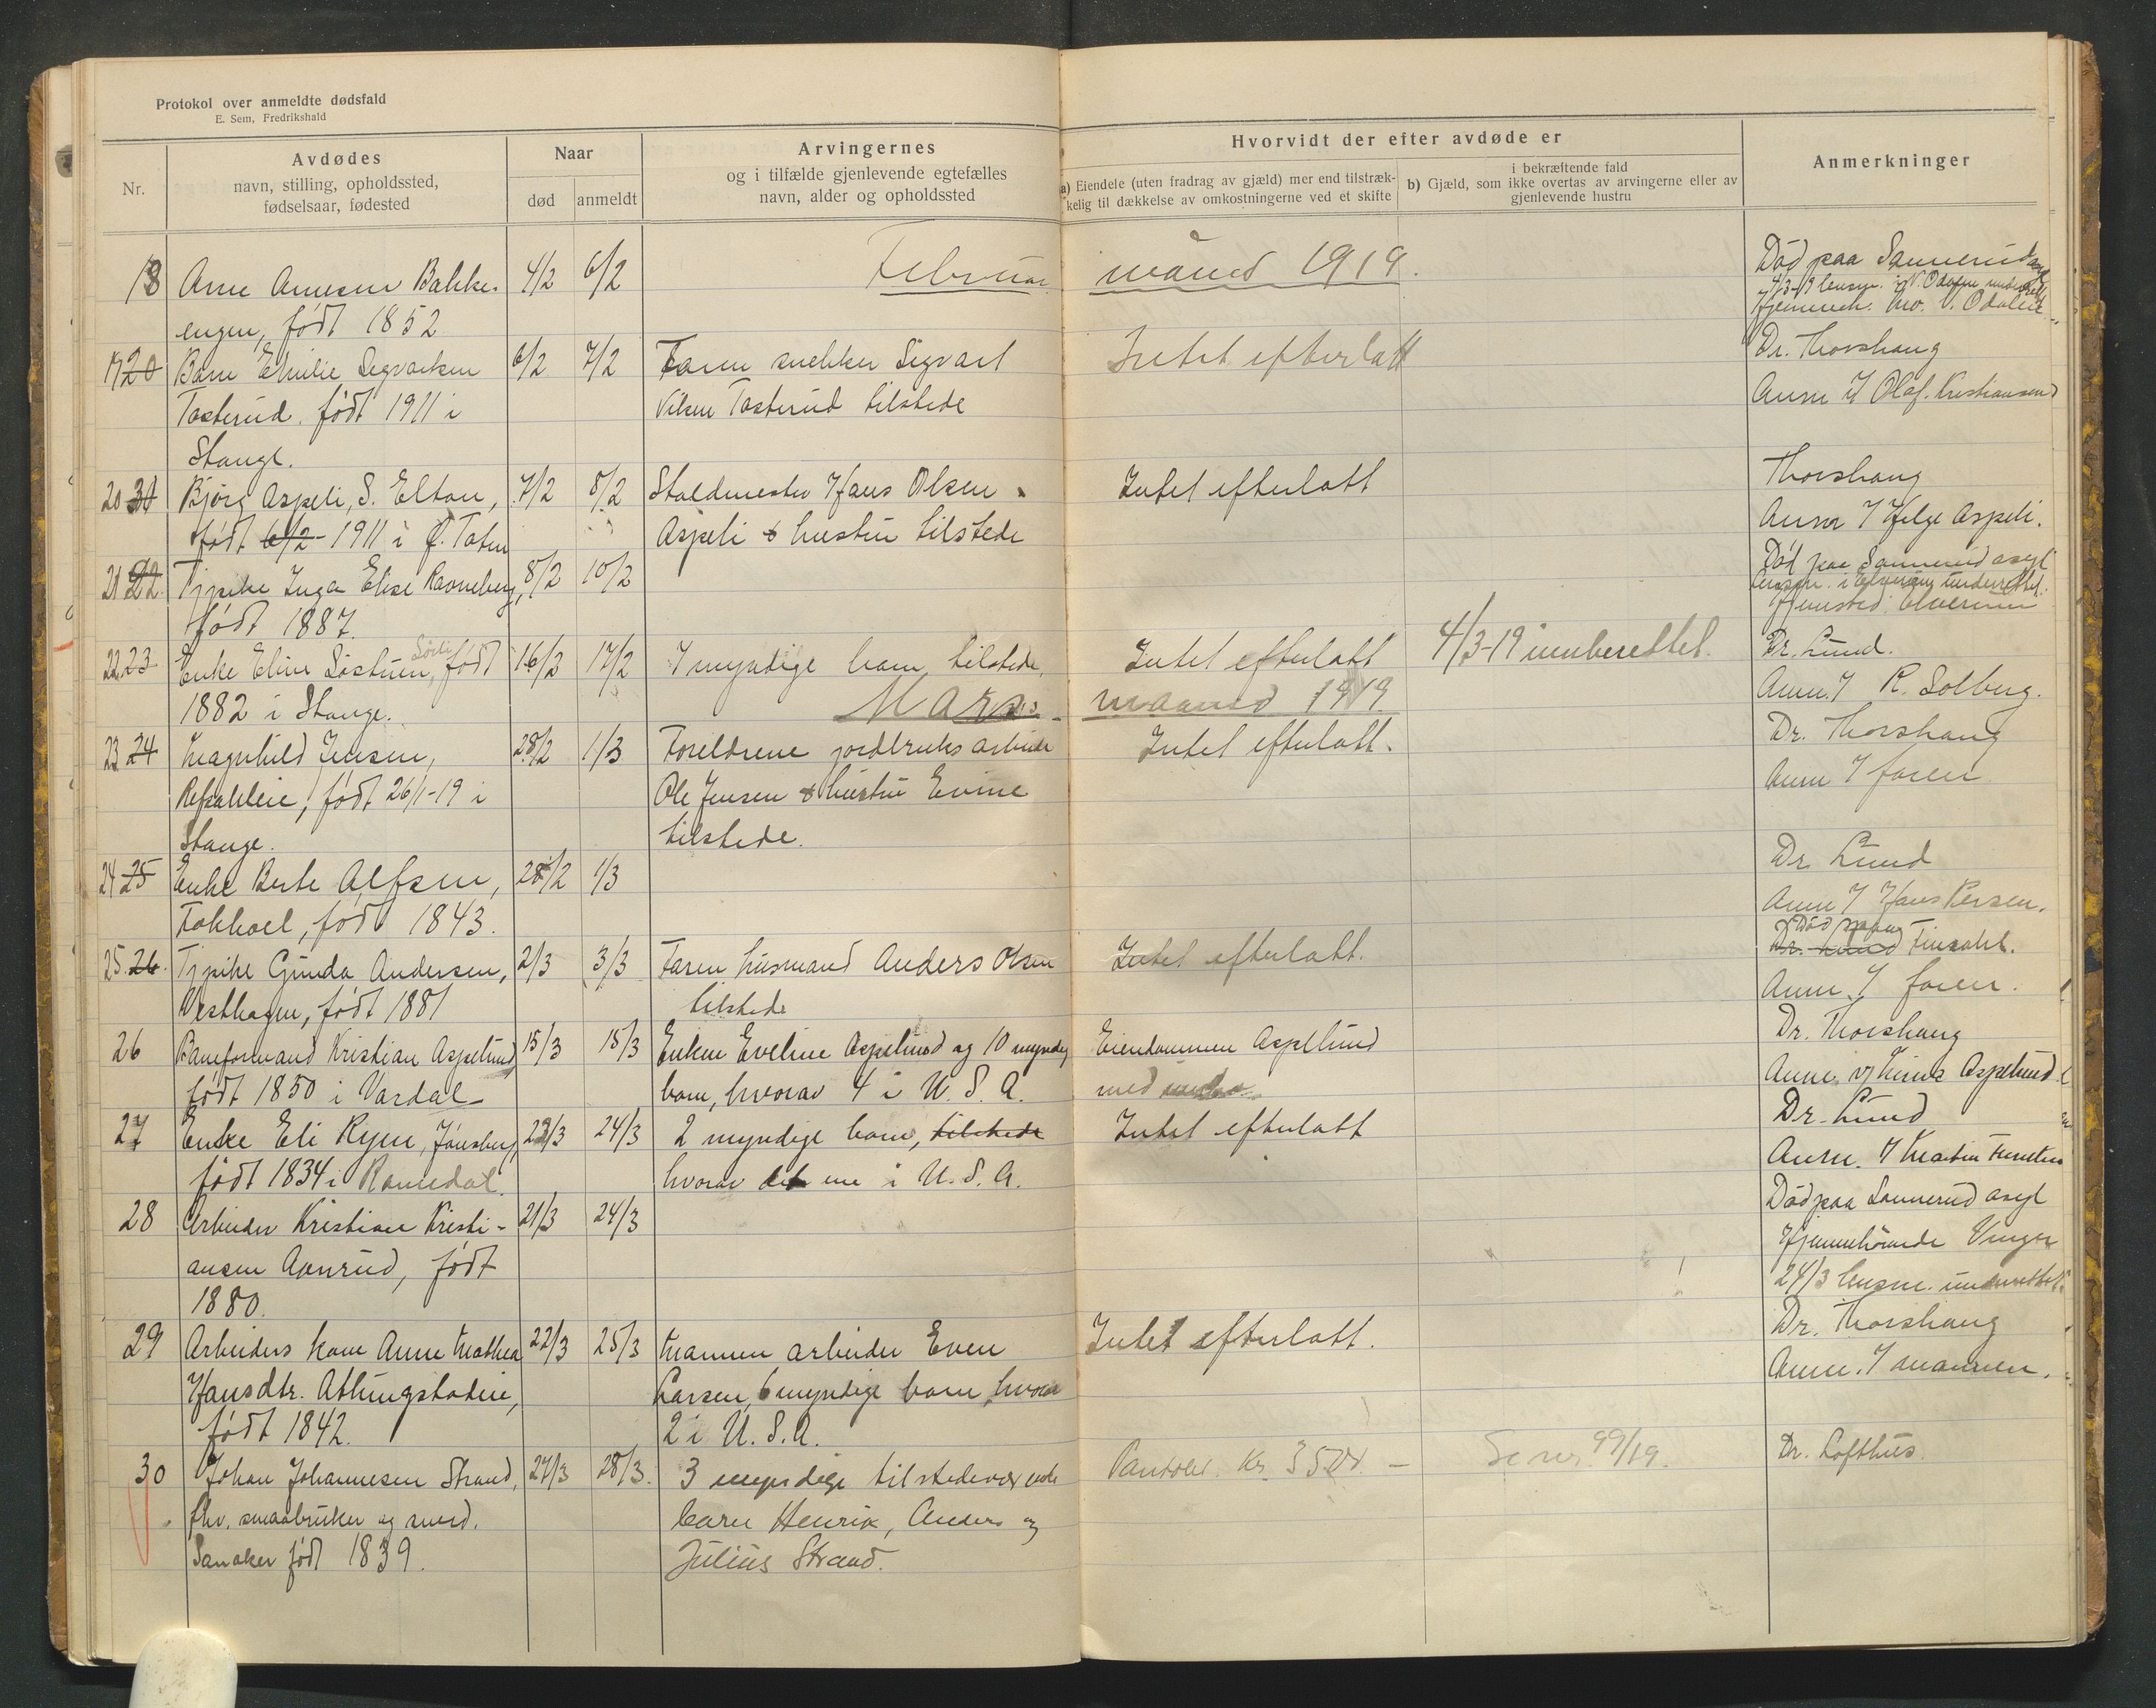 Protokol over anmeldte dødsfald
E. Sem, Fredrikshald
Nr.
Avdødes
navn, stilling, opholdssted,
fødselsaar, fødested
Naar
død
anmeldt
Arvingernes
og i tilfælde gjenlevende egtefælles
navn, alder og opholdssted
Hvorvidt der efter avdøde er
a) Eiendele (uten fradrag av gjæld) mer end tilstræk-
kelig til dækkelse av omkostningerne ved et skifte
i bekræftende fald
b) Gjæld, som ikke overtas av arvingerne eller av
gjenlevende hustru
Anmerkninger
Februar maaned 1919.
18 Arne Arnesen Bakke- 4/2 6/2 Død paa Sannerud asyl
4/3-19 lensm. i N. Odalen underrett
engen, født 1852 Hjemmeh. Mo. N. Odalen
19 20 Barn Emilie Segvartsen 6/2 7/2 Faren snekker Sigvart Intet efterlatt Dr. Thorshaug
Tosterud, født 1911 i Nilsen Tosterud tilstede Anm. v/ Olaf Kristiansen
Stange.
20 31 Bjørg Aspeli, S. Elton, 7/2 8/2 Staldmester Hans Olsen Intet efterlatt Thorshaug
født 6/2 1911 i Ø. Toten Aspeli & hustru tilstede Anm v/ Helge Aspeli.
21 22 Tjpike Inga Elise Ravneberg, 8/2 10/2 Død paa Sannerud asyl
lensm. i Elverum underrettet.
født 1887. Hjemsted Elverum
22 23 Enke Eline Søstuen, født 16/2 17/2 7 myndige barn tilstede. Intet efterlatt 4/3-19 innberettet. Dr. Lund.
1882 i Stange. Anm. v/ R. Solberg.
Mars maaned 1919
23 24 Magnhild Jensen, 28/2 1/3 Forældrene jordbruksarbeider Intet efterlatt. Dr. Thorshaug
Refsahleie, født 26/1-19 i Ole Jensen & hustru Evine Anm v/ faren
Stange. tilstede.
24 25 Enke Berte Alfsen, 28/2 1/3 Dr. Lund
Fokhoel, født 1843. Anm v/ Hans Persen.
25. 26. Tjpike Gunda Andersen, 2/3 3/3 Faren husmand Anders Olsen Intet efterlatt. Død paa
Dr. Lund Finsahl.
Vesthagen, født 1881 tilstede Anm. v/ faren.
26 Baneformand Kristian Aspelund 15/3 15/3 Enken Eveline Aspelund og 10 myndig Eiendommen Aspelund Dr. Thorshaug
født 1850 i Vardal barn, hvorav 4 i U. S. A. med Anm. v/ Aspelund.
27 Enke Eli Ryen, Jønsberg 23/3 24/3 2 myndige barn, tilstede Intet efterlatt Dr. Lund
født 1834 i Romedal. hvorav det ene i U. S. A. Anm. v/ Martin
28 Arbeider Kristian Kristi- 21/3 24/3 Død paa Sannerud asyl
ansen Aanrud, født Hjemmehørende Vinger
1880. 24/3 lensm. underrettet.
29 Arbeiders kone Anne Mathea 22/3 25/3 Mannen arbeider Even Intet efterlatt. Dr. Thorshaug
Hansdtr. Atlungstadeie, Larsen, 6 myndige barn, hvorav Anm. v/ mannen.
født 1842. 2 i U. S. A.
30 Johan Johannesen Strand, 27/3 28/3. 3 myndige tilstedeværende Pantobl. Kr. Se nr. 99/19. Dr. Lofthus.
fhv. smaabruker og smed. barn Henrik, Anders og
Sanaker født 1839. Julius Strand.